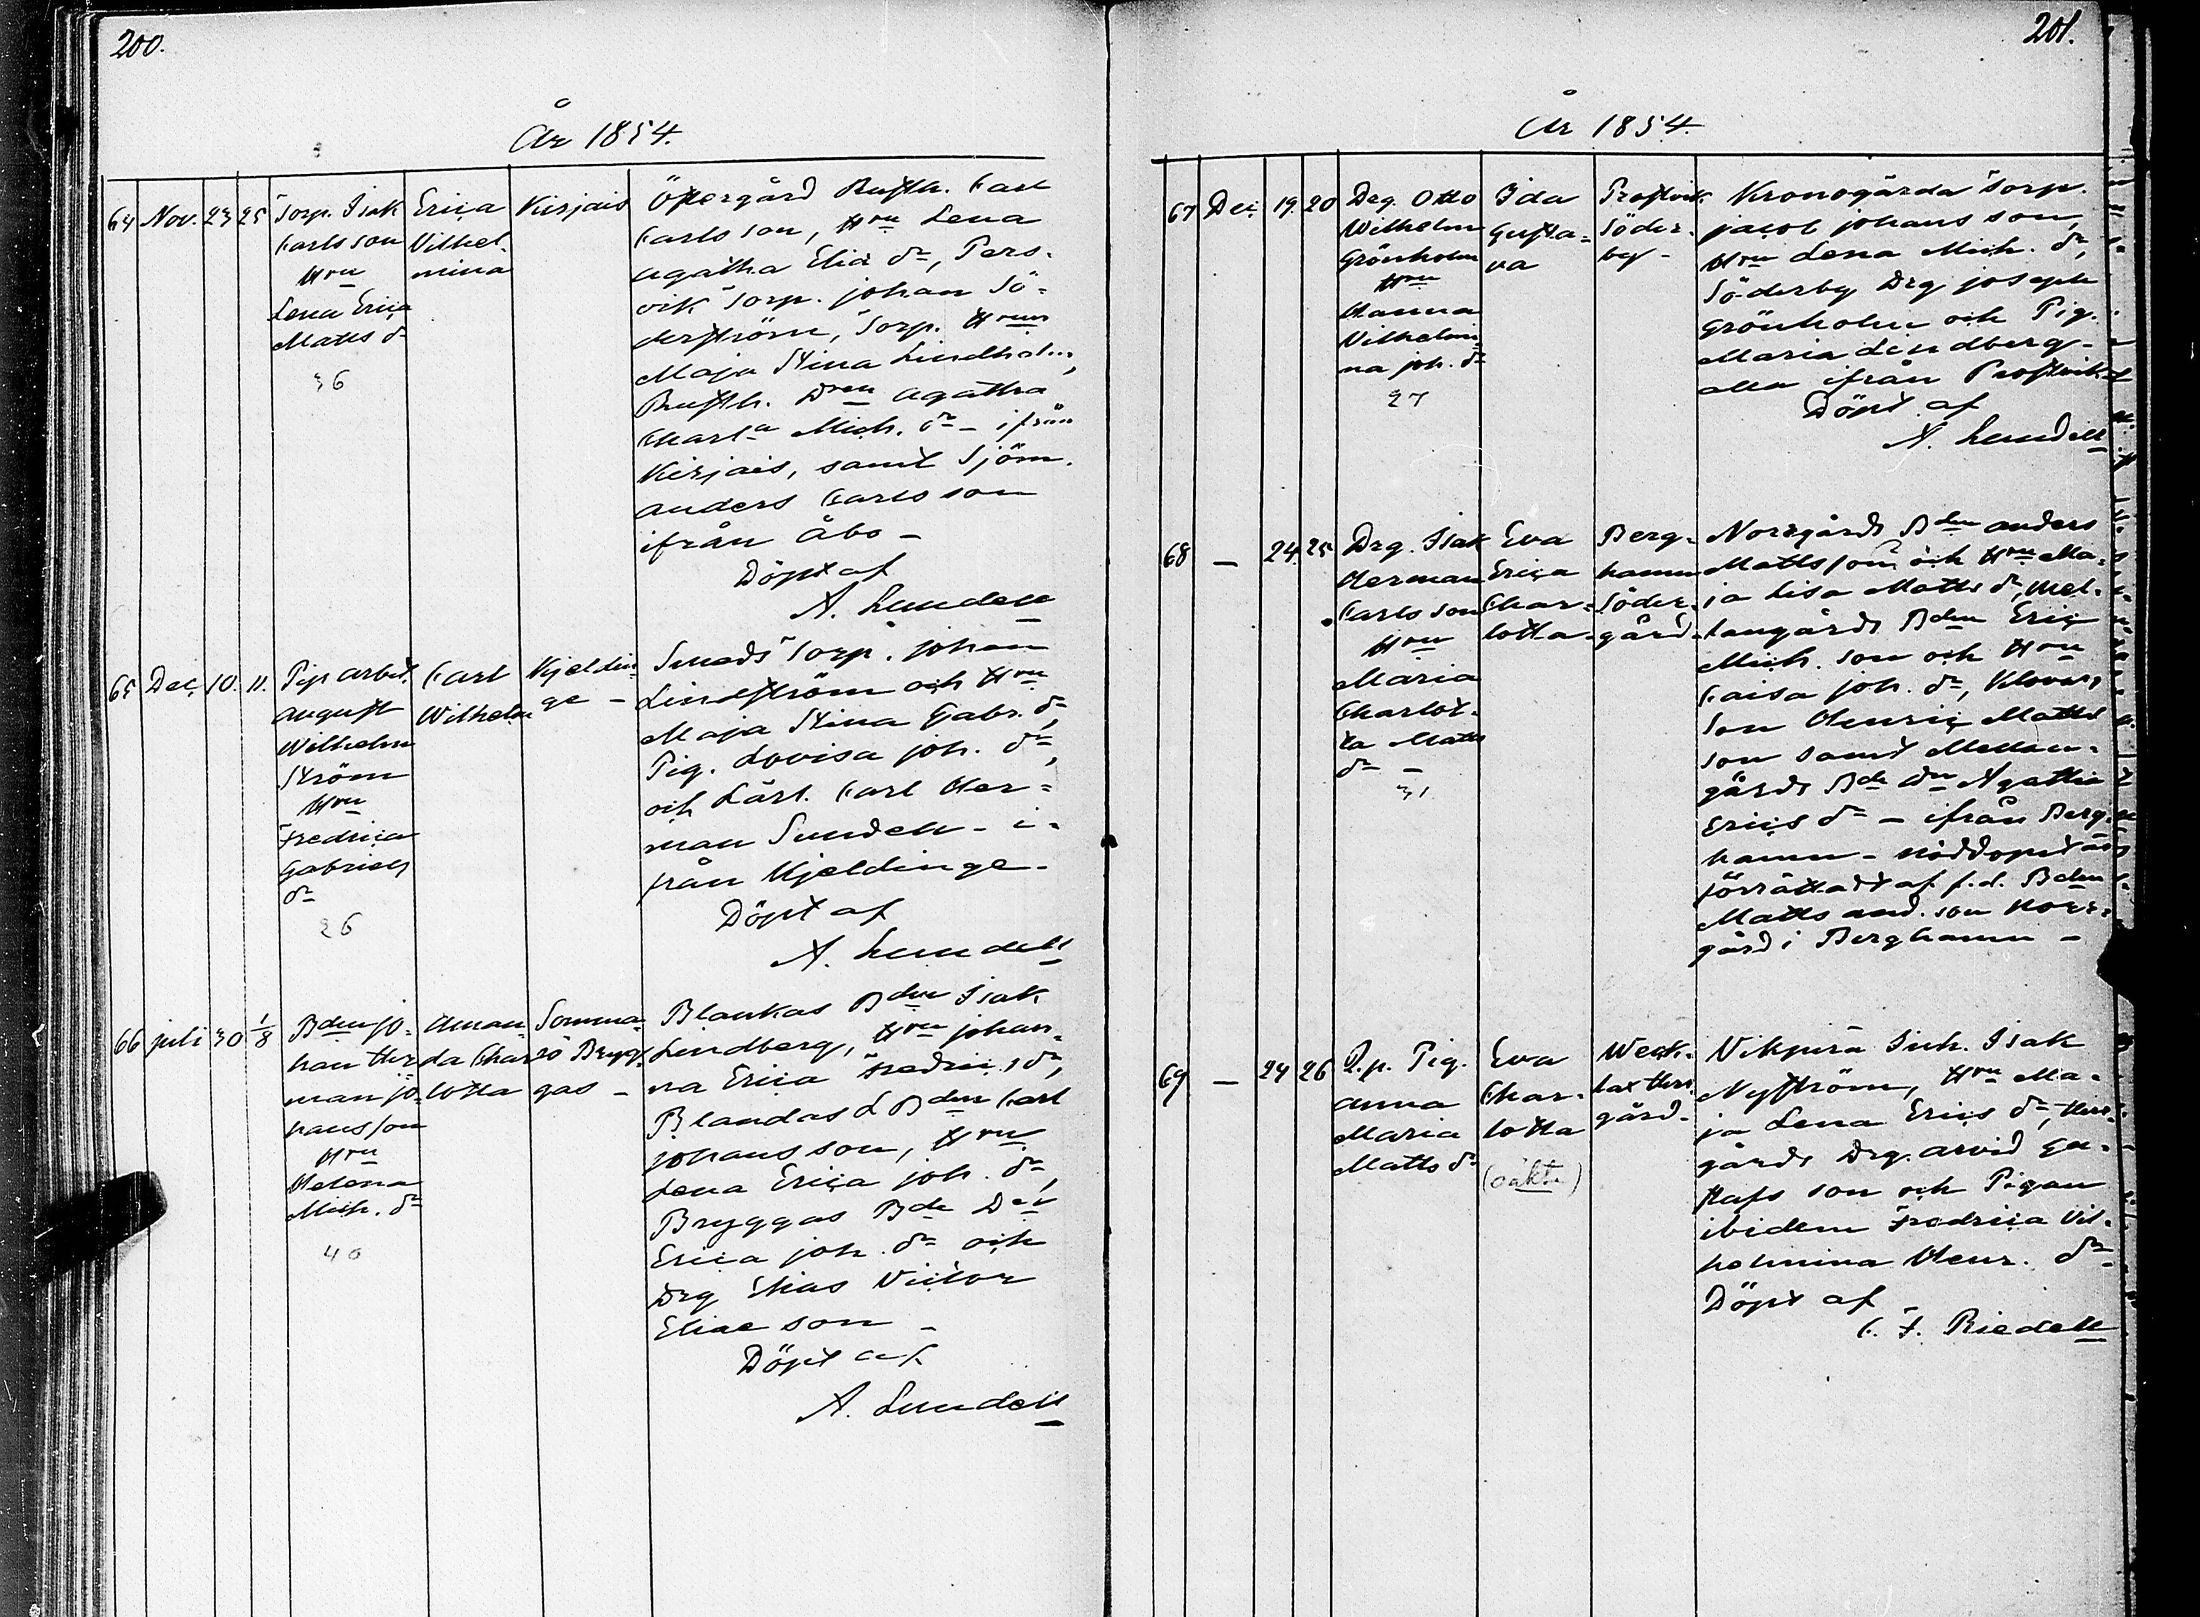 200.
År 1854.
64 Nov. 23 25
Torp. Isak
Carlsson
Hru
Lena Erica
Matts dr
36
Erica
Vilhel-
mina
Kirjais
Östergård Rusth. Carl
Carlsson, Hru Lena
Agatha Eliæ dr, Pers-
vik Torp. Johan Sö-
derström, Torp. Hrun
Maja Stina Lindholm,
Rusth. Dren Agatha
Charl:a Mich. dr - ifrån
Kirjais, samt Sjöm.
Anders Carlsson
ifrån Åbo -
Döpt af
A. Lundell
65 Dec. 10. 11.
arbet.
August
Wilhelm
Ström
Hru
Fredrica
Gabriels
dr
26
Carl
Wilhelm
Kjeldin-
ge -
Smeds Torp. Johan
Lindström och Hru
Maja Stina Gabr. dr,
Pig. Lovisa Joh. dr,
och Lärl. Carl Her-
man Sundell - i-
från Kjeldinge -
Döpt af
A. Lundell
66 Juli 30 1/8
Bden Jo-
han Her-
man Jo-
hansson
Hru
Helena
Mich. dr
40
Aman-
da Char-
lotta
Somma-
rö Bryg-
gas -
Blankas Bden Isak
Lindberg, Hru Johan-
na Erica Fredric. dr,
Blandas Bden Carl
Johansson, Hru
Lena Erica Joh. dr,
Bryggas Bde Der
Erica Joh. dr och
Drg Elias Victor
Eliæ son -
Döpt af
A. Lundell
201.
År 1854.
67 Dec. 19. 20
Drg. Otto
Wilhelm
Grönholm
Hru
Hanna
Vilhelmi-
na Joh. dr
27
Ida
Gusta-
va
Prostvik
Söder-
by -
Kronogårda Torp.
Jacob Johansson,
Hru Lena Mich. dr,
Söderby Drg Joseph
Grönholm och Pig.
Maria Lindberg -
alla ifrån Prostvik
Döpt af
A. Lundell
68 - 24. 25
Drg. Isak
Herman
Carlsson
Hru
Maria
Charlot-
ta Matts
dr -
31
Eva
Erica
Char-
lotta -
Berg-
hamn
Söder-
gård -
Norrgårds Bden Anders
Mattsson och Hru Ma-
ja Lisa Matts dr, Mel-
langårds Bden Eric
Mich. son och Hru
Caisa Joh. dr,
son Henric Matts
son samt Mellan-
gårds Bde Dr Agatha
Erics dr - ifrån Berg-
hamn - nöddopet
förrättadt af f.d. Bden
Matts And. son Norr-
gård i Berghamn -
69 - 24 26
Q.p. Pig.
Anna
Maria
Matts dr
Eva
Char-
lotta
(oäkta)
lax Herr
gård -
Vikpira Inh. Isak
Nyström, Hru Ma-
ja Lena Erics dr, Herr-
gårds Drg. Arvid Gu-
stafs son och Pigan
ibidem Fredrica Vil-
helmina Henr. dr
Döpt af
C. F. Riedell